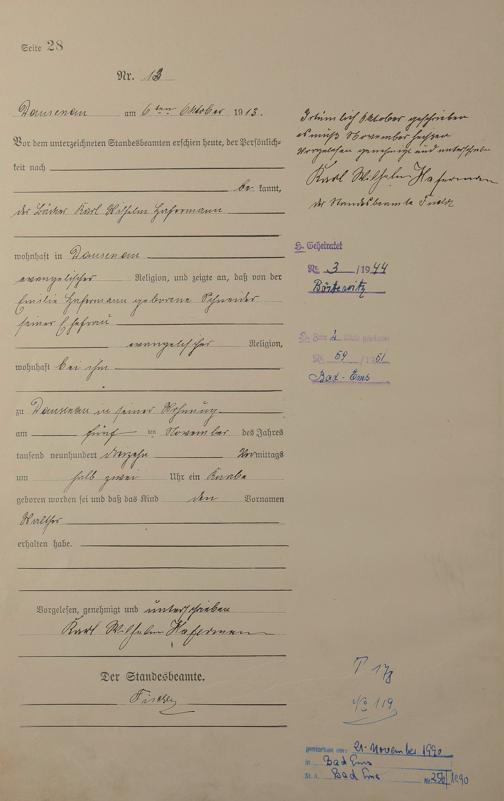 Seite 28
Nr. 13
Dausenau am 6ten Oktober 1913.
Vor dem unterzeichneten Standesbeamten erschien heute, der Persönlich-
keit nach
be kannt,
der Bäcker Karl Wilhelm Hafermann
wohnhaft in Dausenau
evangelischer Religion, und zeigte an, daß von der
Emilie Hafermann geborene Schneider
seiner Ehefrau
evangelischer Religion,
wohnhaft bei ihm
zu Dausenau in seiner Wohnung
am fünf ten November des Jahres
tausend neunhundert dreizehn Vormittags
um halb zwei Uhr ein Knabe
geboren worden sei und daß das Kind den Vornamen
Walther
erhalten habe.
Vorgelesen, genehmigt und unterschrieben
Karl Wilhelm Hafermann
Der Standesbeamte.
Irtümlich Oktober geschrieben
es muß November heißen
Vorgelesen genehmigt und unterschrieben
Karl Wilhelm Hafermann
der Standesbeamte
Geheiratet
Nr. 3 /1944
Nr. 59 /1951
Bad-Ems
gestorben am: 21. November 1990
in Bad Ems
St. A. Bad Ems Nr. 1990